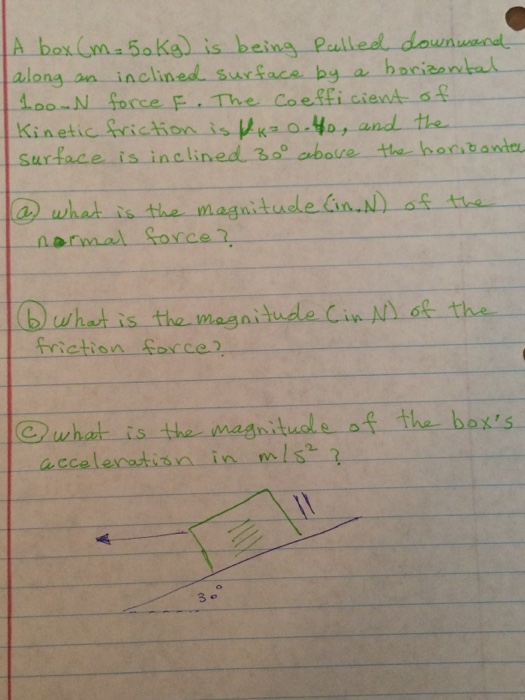 A box (m=50Kg) is being pulled downward
along an inclined surface by a horizontal
100-N force F. The Coefficient of
Kinetic friction is μk=0.40, and the
surface is inclined 30° above the horizonta
(a) what is the magnitude (in.N) of the
normal force?
(b) what is the magnitude (in N) of the
friction force?
(c) what is the magnitude of the box's
acceleration in m/s² ?
30°